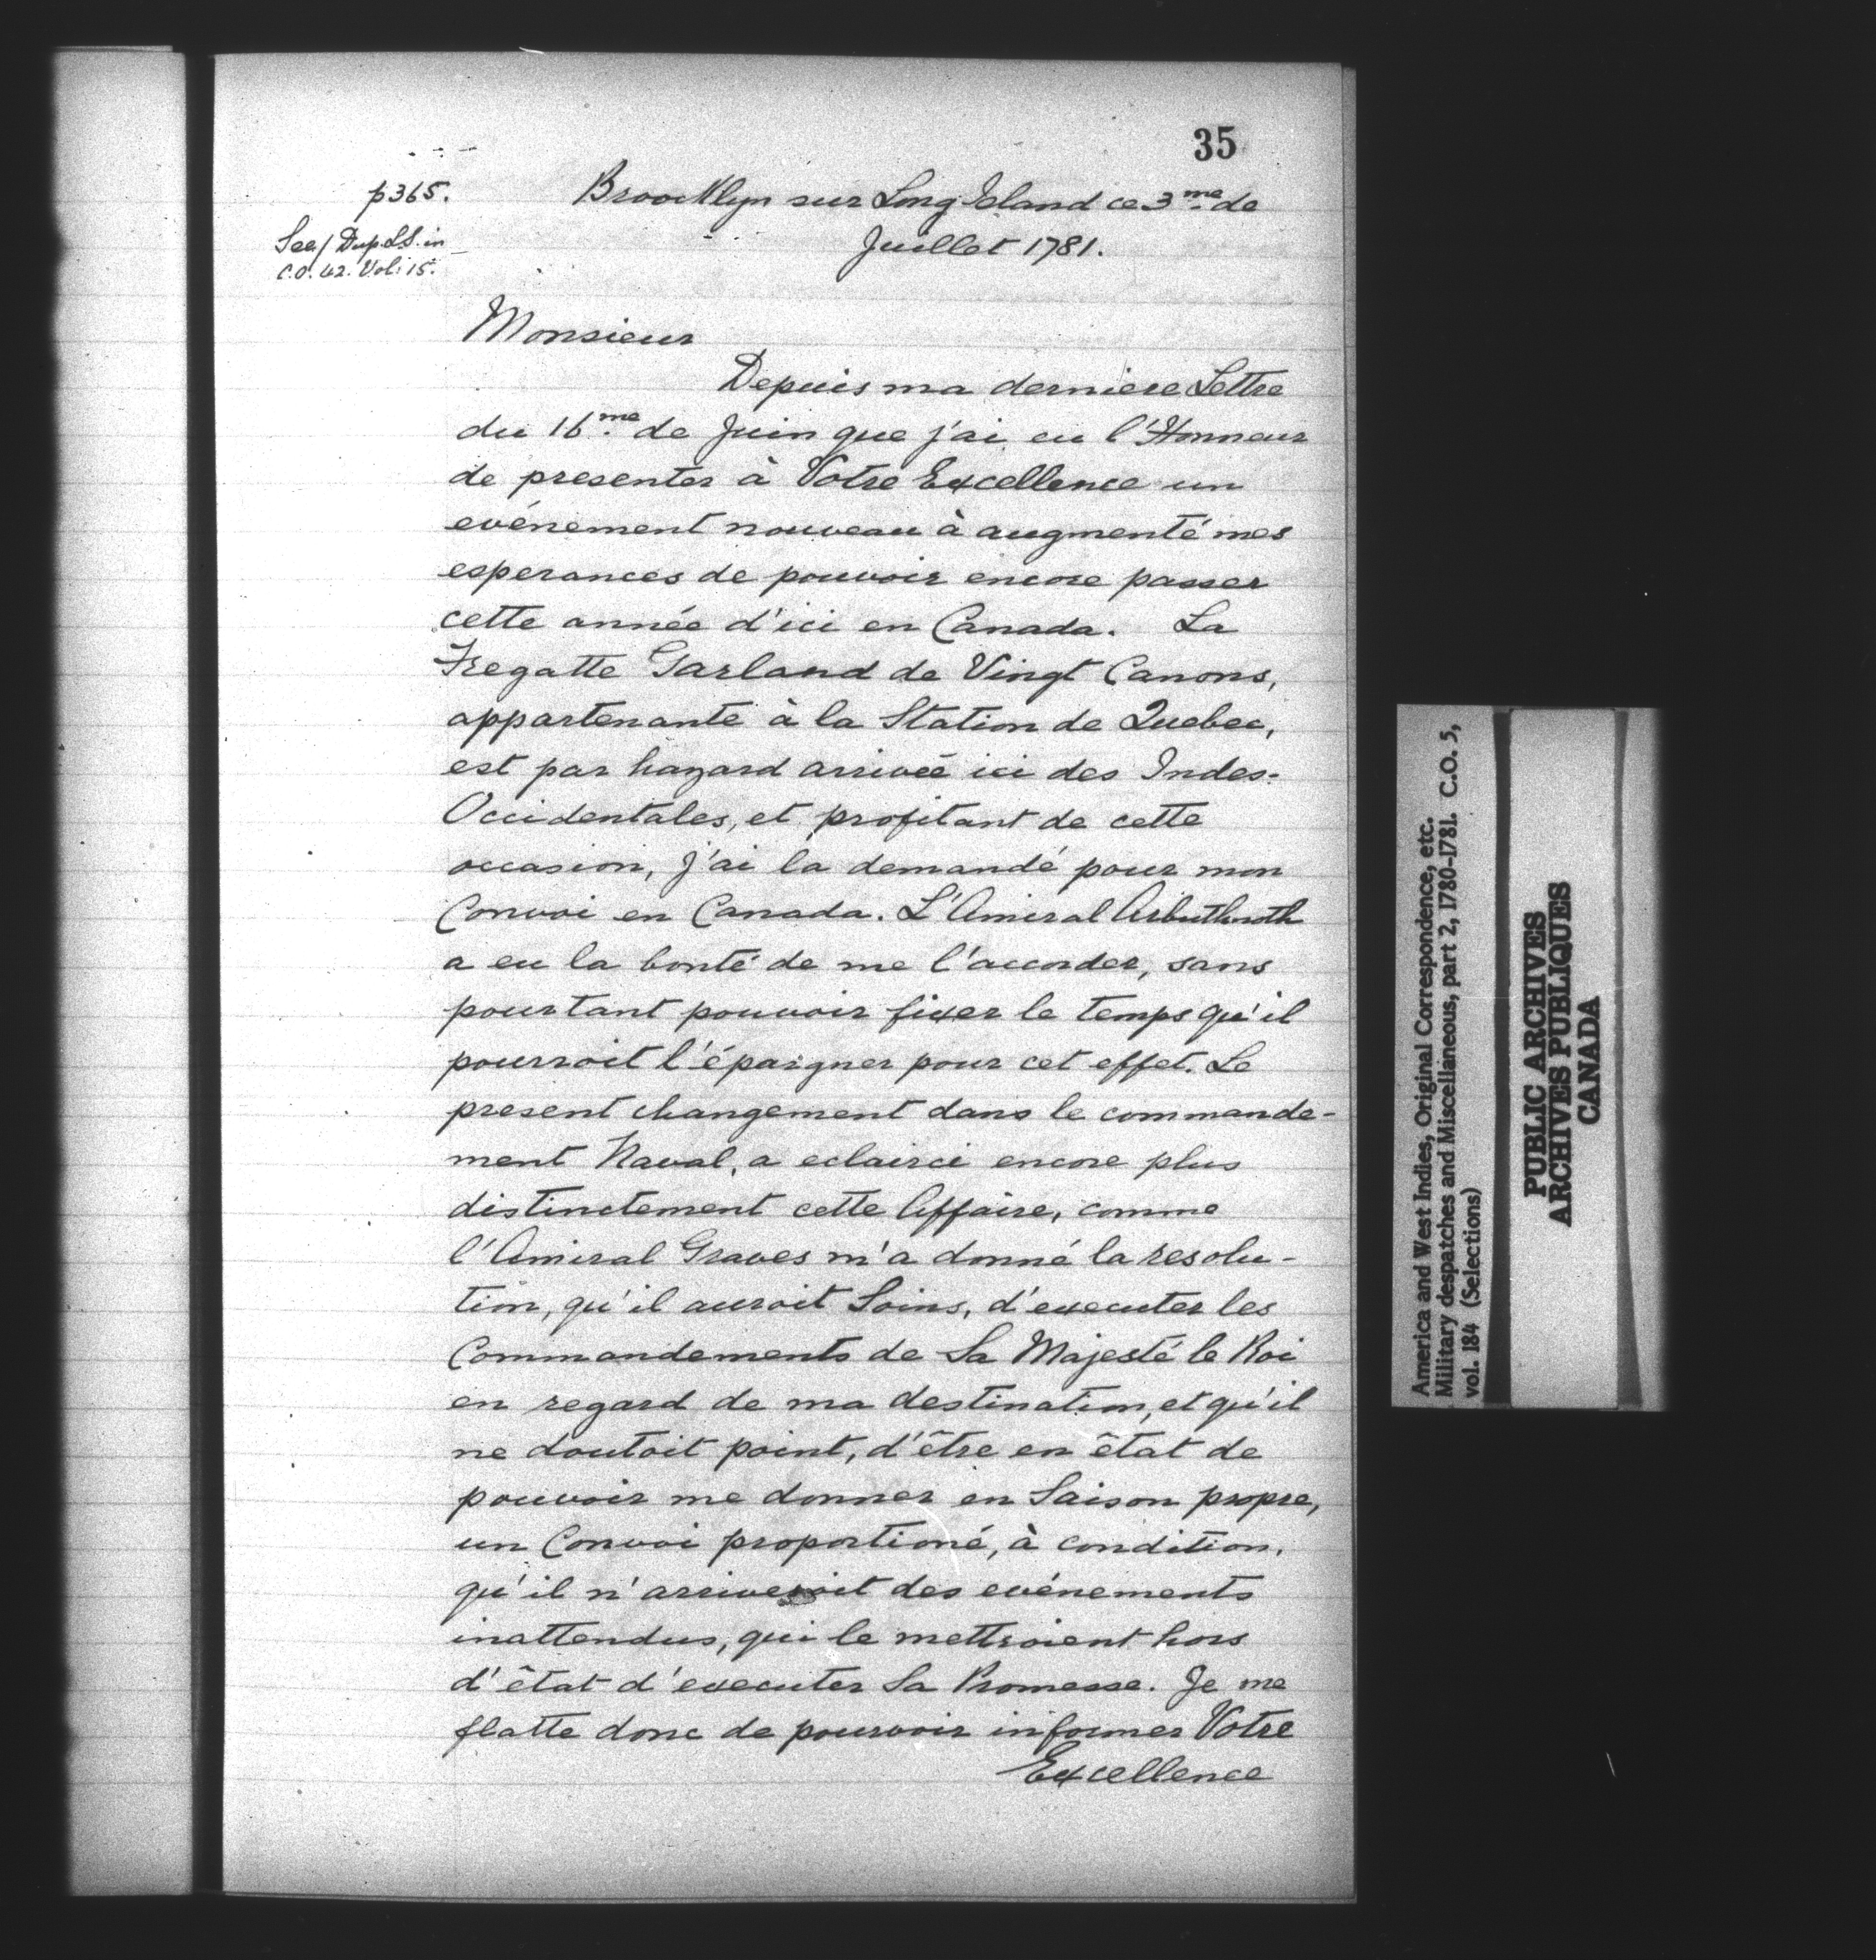 35
p365.
See/ Dup. L.S. in
C.O. 42. Vol: 15.
Broocklyn sur Long Island ce 3.me de
Juillet 1781.
Monsieur
Depuis ma derniere Lettre
du 16.me de Juin que j'ai eu l'Honneur
de presenter à Votre Excellence un
evénement nouveau à augmenté mes
esperances de pouvoir encore passer
cette année d'ici en Canada. La
Fregatte Garland de Vingt Canons,
appartenante à la Station de Quebec,
est par hazard arriveé ici des Indes-
Occidentales, et profitant de cette
occasion, j'ai la demandé pour mon
Convoi en Canada. L'Amiral Arbuthnoth
a eu la bonté de me l'accorder, sans
pourtant pouvoir fixer le temps qu'il
pourroit l'épargner pour cet effet. Le
present changement dans le commande-
ment Naval, a eclairci encore plus
distinctement cette Affaire, comme
l'Amiral Graves m'a donné la resolu-
tion, qu'il auroit Soins, d'executer les
Commandements de Sa Majesté le Roi
en regard de ma destination, et qu'il
ne doutoit point, d'être en êtat de
pouvoir me donner en Saison propre,
un Convoi proportioné, à condition,
qu'il n'arriveroit des evénements
inattendus, qui le mettroient hors
d'êtat d'executer Sa Promesse. Je me
flatte donc de pourvoir informer Votre
Excellence
America and West Indies, Original Correspondence, etc.
Military despatches and Miscellaneous, part 2, 1780-1781. C.O. 5,
vol. 184 (Selections)
PUBLIC ARCHIVES
ARCHIVES PUBLIQUES
CANADA